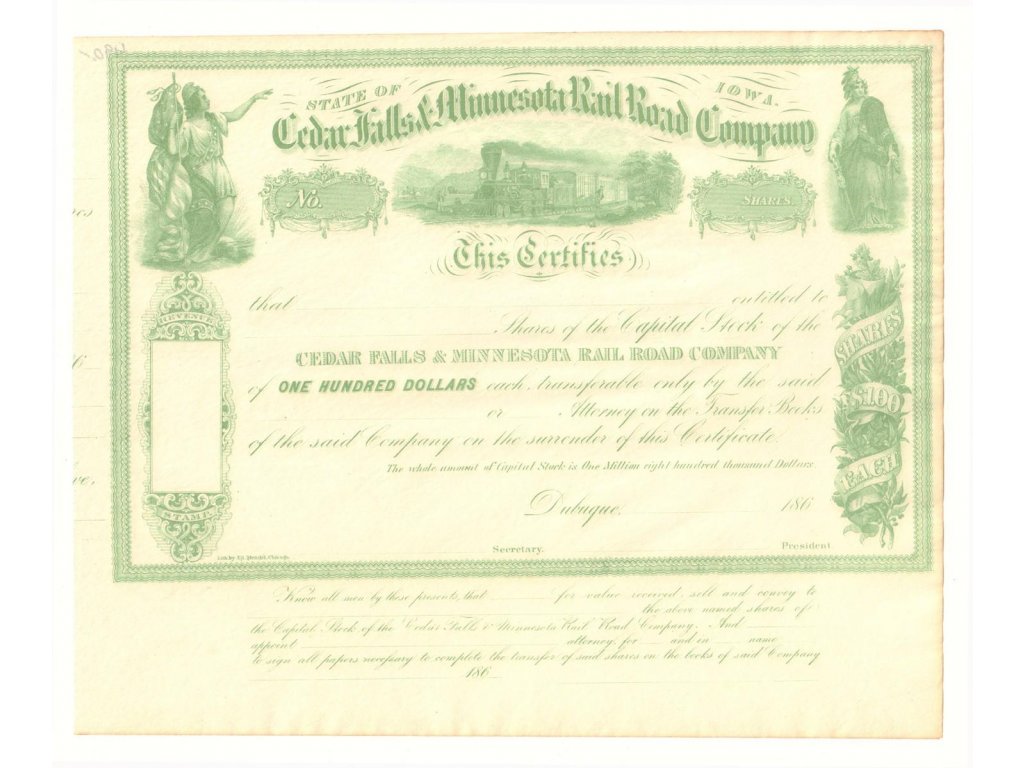 490.-
STATE OF IOWA.
Cedar Falls & Minnesota Rail Road Company
No.
SHARES.
This Certifies
that entitled to
Shares of the Capital Stock of the
CEDAR FALLS & MINNESOTA RAIL ROAD COMPANY
of ONE HUNDRED DOLLARS each, transferable only by the said
or Attorney on the Transfer Books
of the said Company on the surrender of this Certificate.
The whole amount of Capital Stock is One Million eight hundred thousand Dollars.
Dubuque, 186
Secretary. President.
REVENUE
STAMP.
SHARES
$100
EACH
Lith. by Ed. Mendel, Chicago.
Know all men by these presents, that for value received, sell and convey to
the above named shares of
the Capital Stock of the Cedar Falls & Minnesota Rail Road Company. And
appoint attorney, for and in name
to sign all papers necessary to complete the transfer of said shares on the books of said Company
186